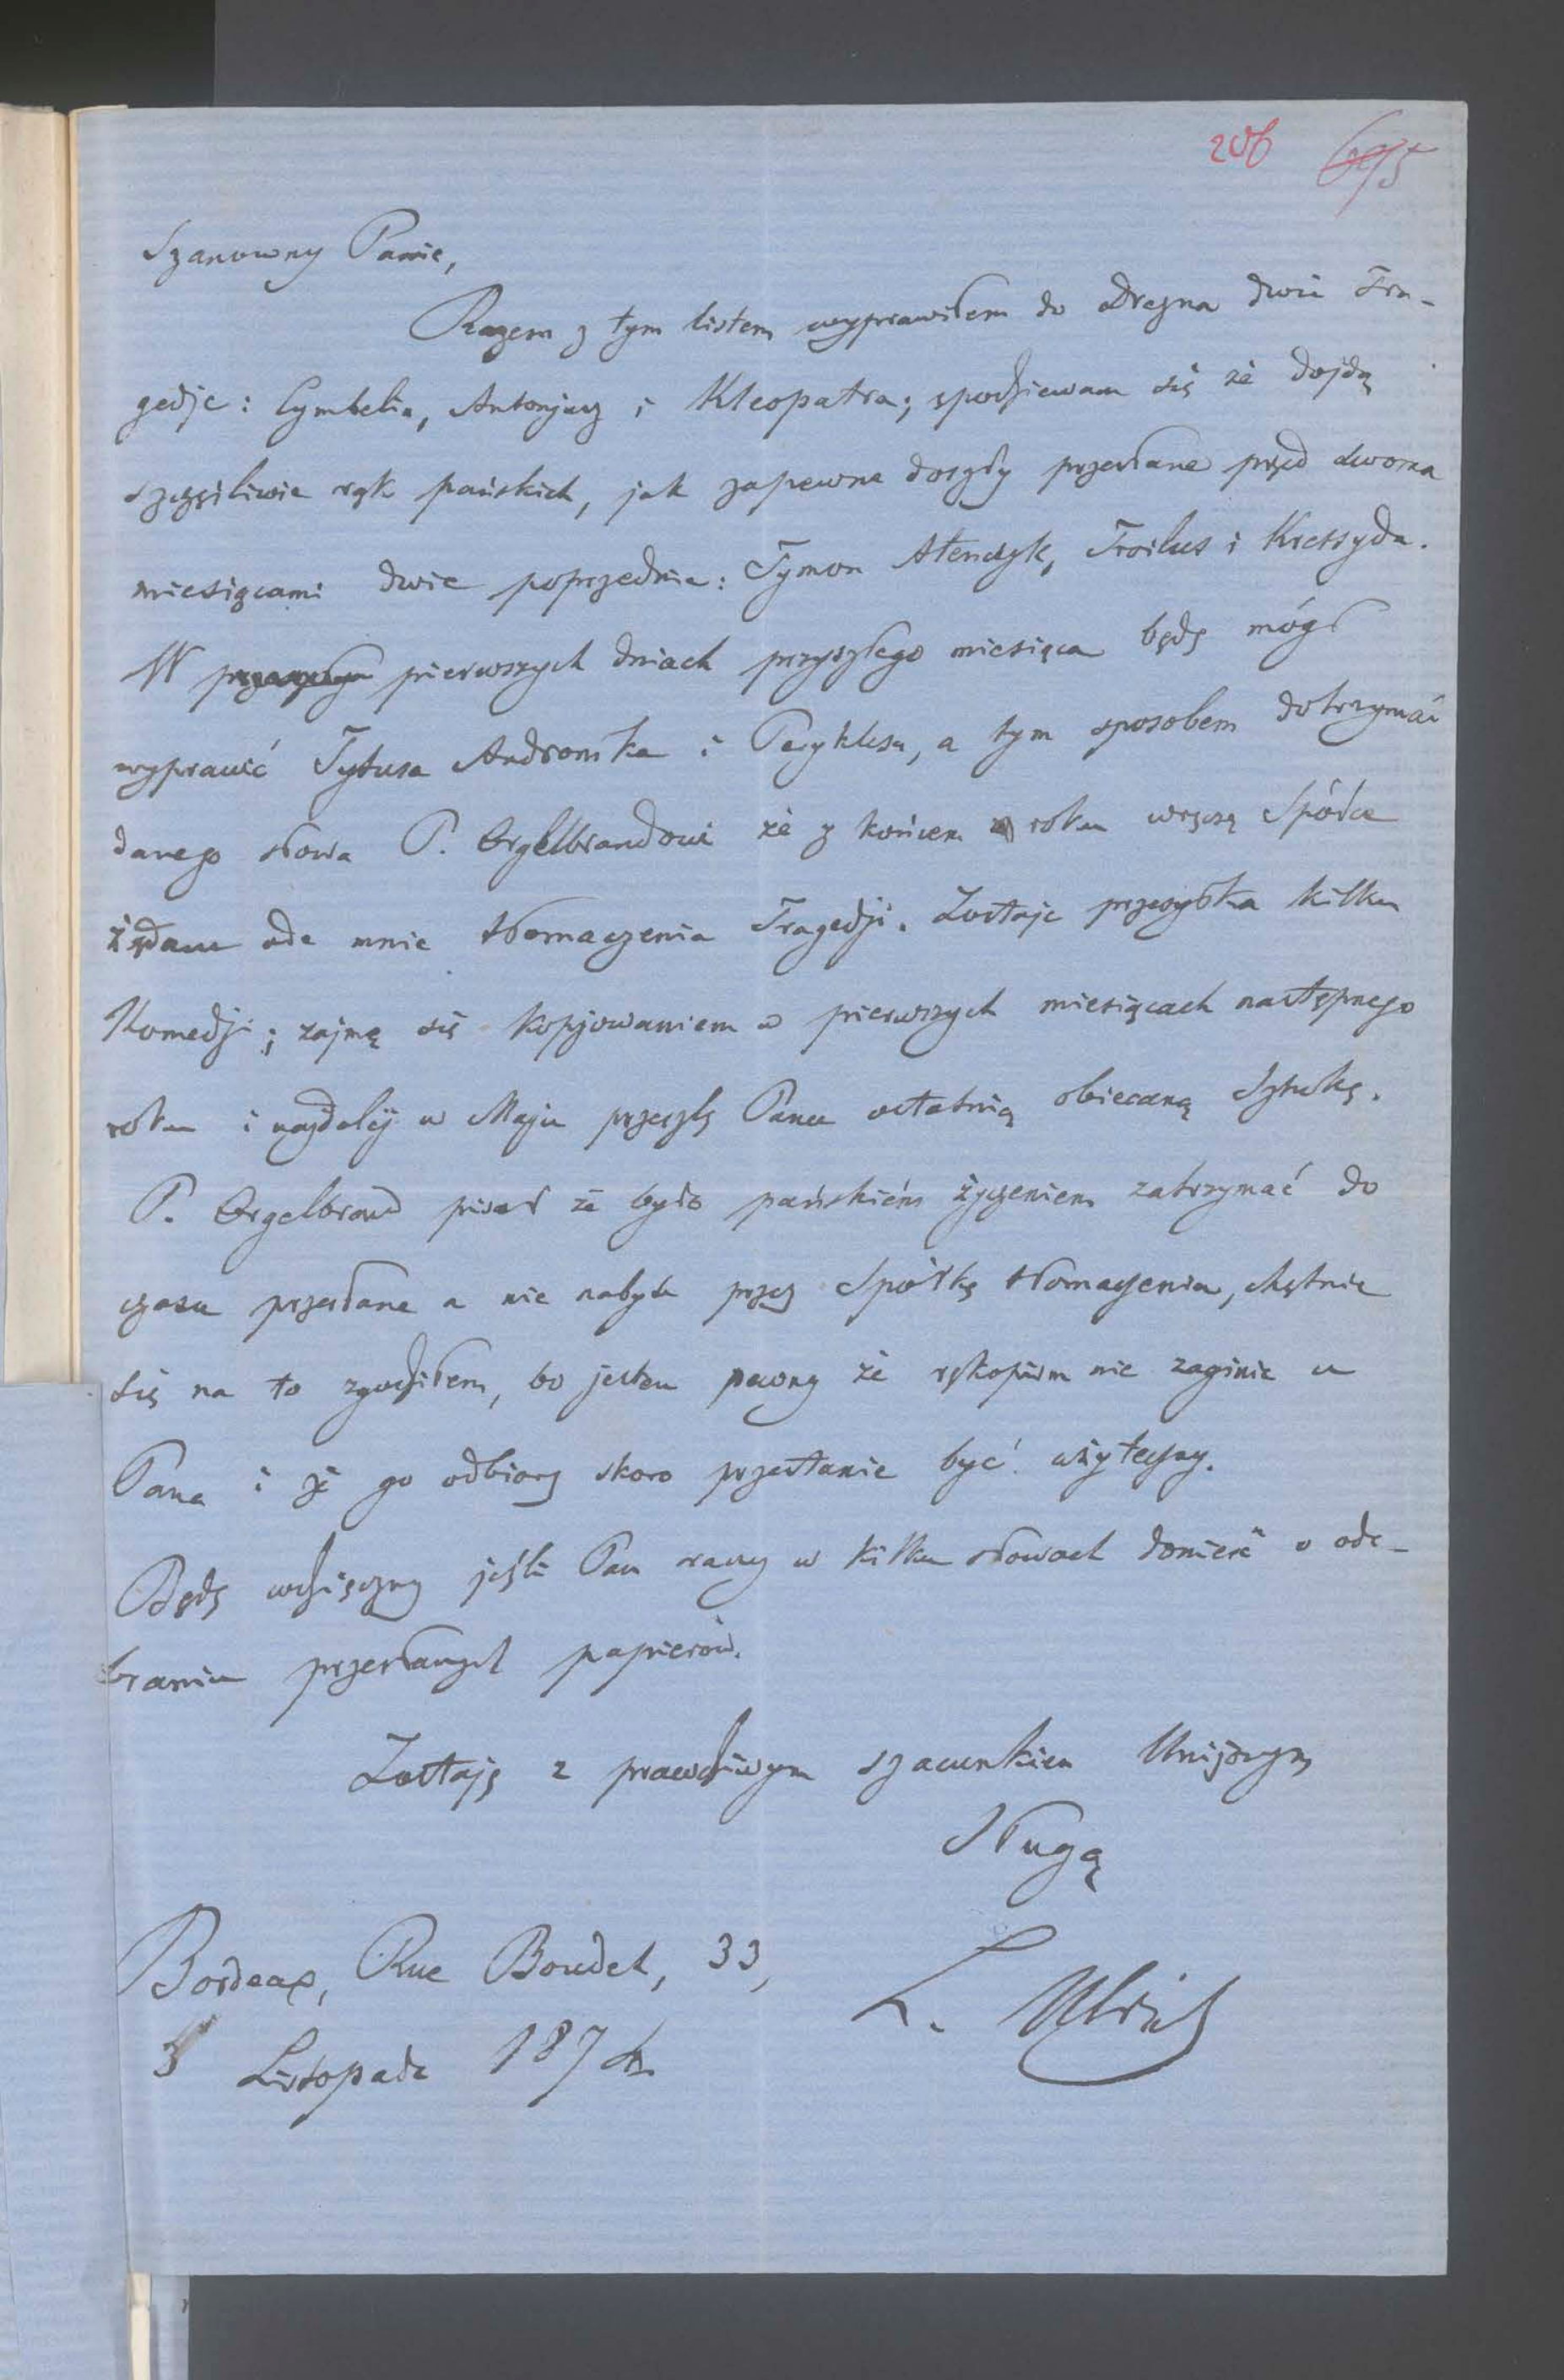 206 695
Szanowny Panie,
Razem z tym listem wyprawiłem do Drezna dwie Tra-
gedje: Cymbelin, Antonjusz i Kleopatra; spodziewam się że dojdą
szczęśliwie rąk pańskich, jak zapewne doszły przesłane przed dwoma
miesiącami dwie poprzednie: Tymon Ateńczyk, Troilus i Kressyda.
W pierwszych dniach przyszłego miesiąca będę mógł
wyprawić Tytusa Andronika i Peryklesa, a tym sposobem dotrzymać
danego słowa P. Orgelbrandowi że z końcem roku wręczę Spółce
żądane ode mnie tłomaczenia Tragedji. Zostaje przesyłka kilku
Komedji; zajmę się kopjowaniem w pierwszych miesiącach następnego
roku i najdalej w Maju przeszlę Panu ostatnią obiecaną Sztukę.
P. Orgelbrand pisał że było pańskiém życzeniem zatrzymać do
czasu przesłane a nie nabyte przez Spółkę tłomaczenia, chętnie
się na to zgodziłem, bo jestem pewny że rękopism nie zaginie u
Pana i że go odbiorę skoro przestanie być użyteczny.
Będę wdzięczny jeśli Pan raczy w kilku słowach donieść o ode-
braniu przesłanych papierów.
Zostaję z prawdziwym szacunkiem Uniżonym
Sługą
Bordeax, Rue Boudet, 33,
L. Ulrich
Listopada 187